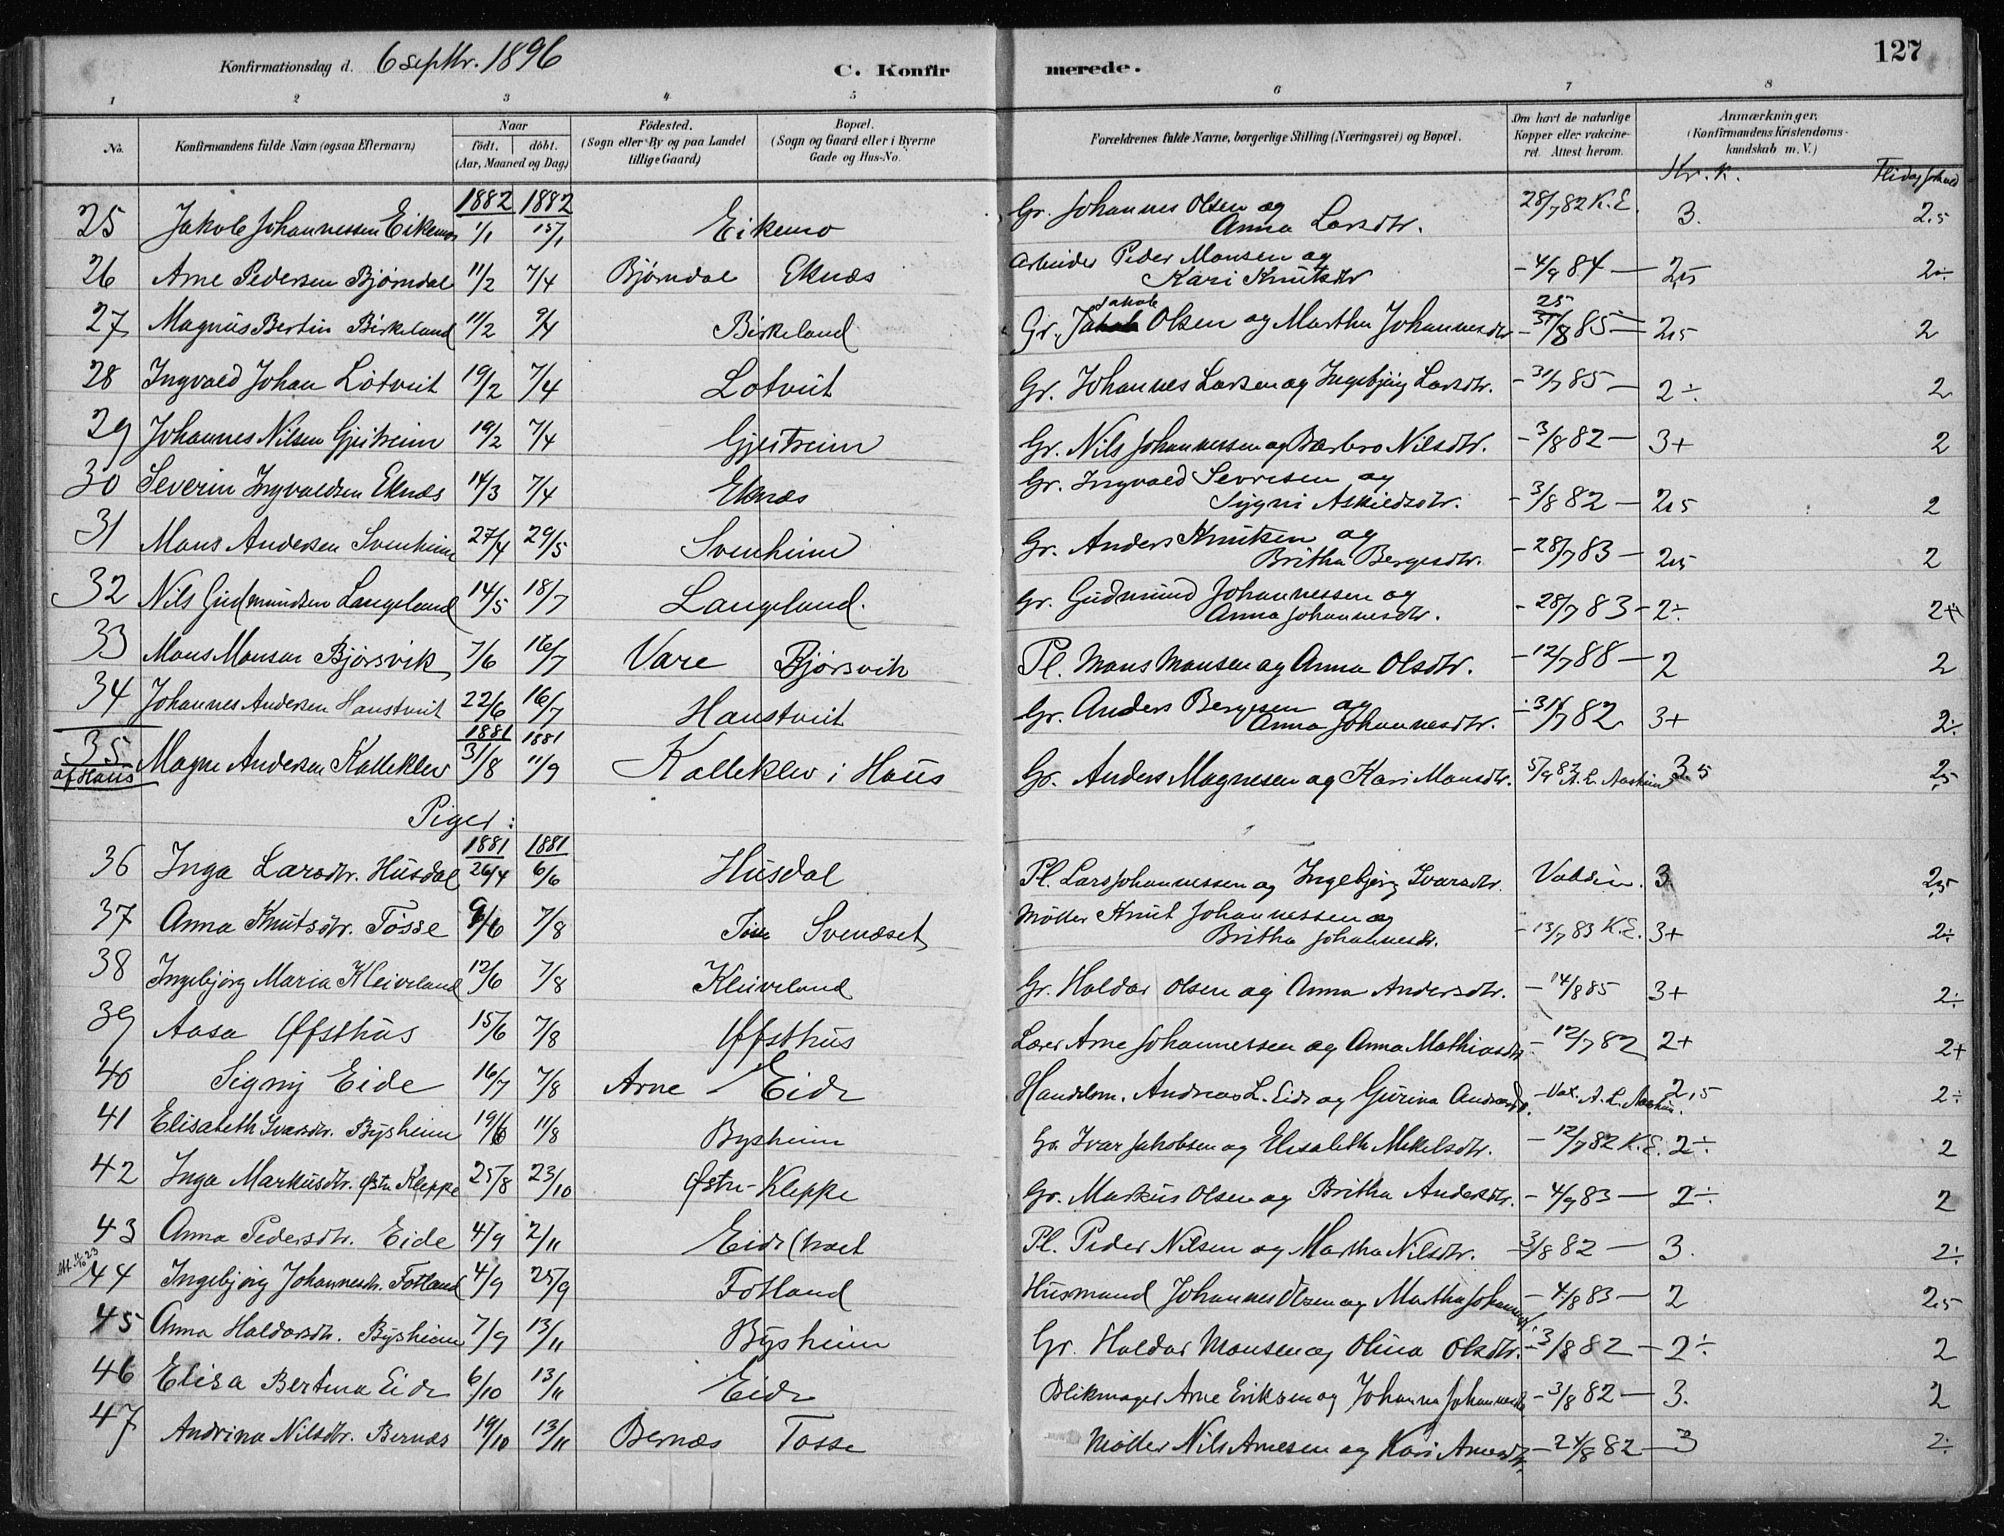 Konfirmationsdag d. 6 septbr. 1896 C. Konfir merede. 127
1 2 3 4 5 6 7 8
No. Konfirmandens fulde Navn (ogsaa Efternavn) Naar født. døbt. (Aar, Maaned og Dag) Fødested. (Sogn eller By og paa Landet tillige Gaard) Bopæl. (Sogn og Gaard eller i Byerne Gade og Hus-No. Forældrenes fulde Navne, borgerlige Stilling (Næringsvei) og Bopæl. Om havt de naturlige Kopper eller vakcineret. Attest herom. Anmærkninger, (Konfirmandens Kristendomskundskab m. V.)
Kr. K.
1882 1882
25 Jakob Johannessen Eikemo 1/1 15/1 Eikemo Gr. Johannes Olsen og Anna Larsdtr. 28/7 82 K.E. 3. 2.5
26 Arne Pedersen Bjørndal 11/2 7/4 Bjørndal Eknæs Arbeider Peder Monsen og Kari Knutsdtr - 4/9 84 - 2,5 2÷
27 Magnus Bertin Birkeland 11/2 9/4 Birkeland Gr. Jakob Olsen og Martha Johannesdtr 25 31/8 85 - 2,5 2
28 Ingvald Johan Lotveit 19/2 7/4 Lotveit Gr. Johannes Larsen og Ingebjørg Larsdtr. - 31/7 85 - 2÷ 2
29 Johannes Nilsen Gjeitreim 19/2 7/4 Gjeitreim Gr. Nils Johannessen og Barbro Nilsdtr. - 3/8 82 - 3+ 2
30 Severin Ingvaldsen Eknæs 14/3 7/4 Eknæs Gr. Ingvald Sevresen og Sygni Askildsdtr. - 3/8 82 - 2,5 2
31 Mons Andersen Svenheim 27/4 29/5 Svenheim Gr. Anders Knutsen og Britha Bergesdtr. - 28/7 83 - 2,5 2
32 Nils Gudmundsen Langeland 14/5 18/7 Langeland. Gr. Gudmund Johannessen og Anna Johannesdtr. - 28/7 83 - 2÷ 2+
33 Mons Monsen Bjørsvik 7/6 16/7 Vare Bjørsvik Pl. Mons Monsen og Anna Olsdtr. - 12/7 88 - 2 2
34 Johannes Andersen Haustveit 22/6 16/7 Haustveit Gr. Anders Bergesen og Anna Johannesdtr. - 31/7 82 3+ 2÷
1881 1881
35. af Haus Magne Andersen Kalleklev 31/8 11/9 Kalleklev i Haus Gr. Anders Magnesen og Kari Monsdtr. 5/9 82 3.5 2,5
Piger:
1881 1881
36 Inga Larsdtr. Husdal 26/4 6/6 Husdal Pl. Lars Johannessen og Ingebjørg Ivarsdtr. 3 2,5
37 Anna Knutsdtr. Tøsse 9/6 7/8 Svenæset Møller Knut Johannessen og Britha Johannesdtr. - 13/7 83 K.E. 3+ 2÷
38 Ingebjørg Maria Kleiveland 12/6 7/8 Kleiveland Gr. Haldor Olsen og Anna Andersdtr. - 14/8 85 3+ 2÷
39 Aasa Øfsthus 15/6 7/8 Øfsthus Lærer Arne Johannessen og Anna Mathiasdtr - 12/7 82 2+ 2+
40 Signy Eide 16/7 7/8 Arne Eide Handelsm. Andreas L. Eide og Gurina Andersdtr. - Vax. 2,5 2÷
41 Elisabeth Ivarsdtr. Bysheim 19/6 11/8 Bysheim Gr. Ivar Jakobsen og Elisabeth Mikelsdtr. - 12/7 82 K.E. 2÷ 2
42 Inga Markusdtr. Østre Kleppe 25/8 23/10 Østre-Kleppe Gr. Markus Olsen og Britha Andersdtr. - 4/9 83 - 2÷ 2
43 Anna Pedersdtr. Eide 4/9 2/11 Eide Pl. Peder Nilsen og Martha Nilsdtr. 3/8 82 - 3. 2÷
44 Ingebjørg Johannesdtr. Fotland 4/9 25/9 Fotland Husmand Johannes Olsen og Martha Johannesdtr - 4/8 83 - 2 2,5
45 Anna Haldorsdtr. Bysheim 7/9 13/11 Bysheim Gr. Haldor Monsen og Olina Olsdtr. - 3/8 82 - 2÷ 2
46 Elisa Bertina Eide 6/10 13/11 Eide Blikmager Arne Eriksen og Johanna Johannesdtr - 3/8 82 - 3. 2
47 Andrina Nilsdtr. Bernæs 19/10 13/11 Bernæs Tøsse Møller Nils Arnesen og Kari Arnesdtr. - 24/8 82 - 3 2÷